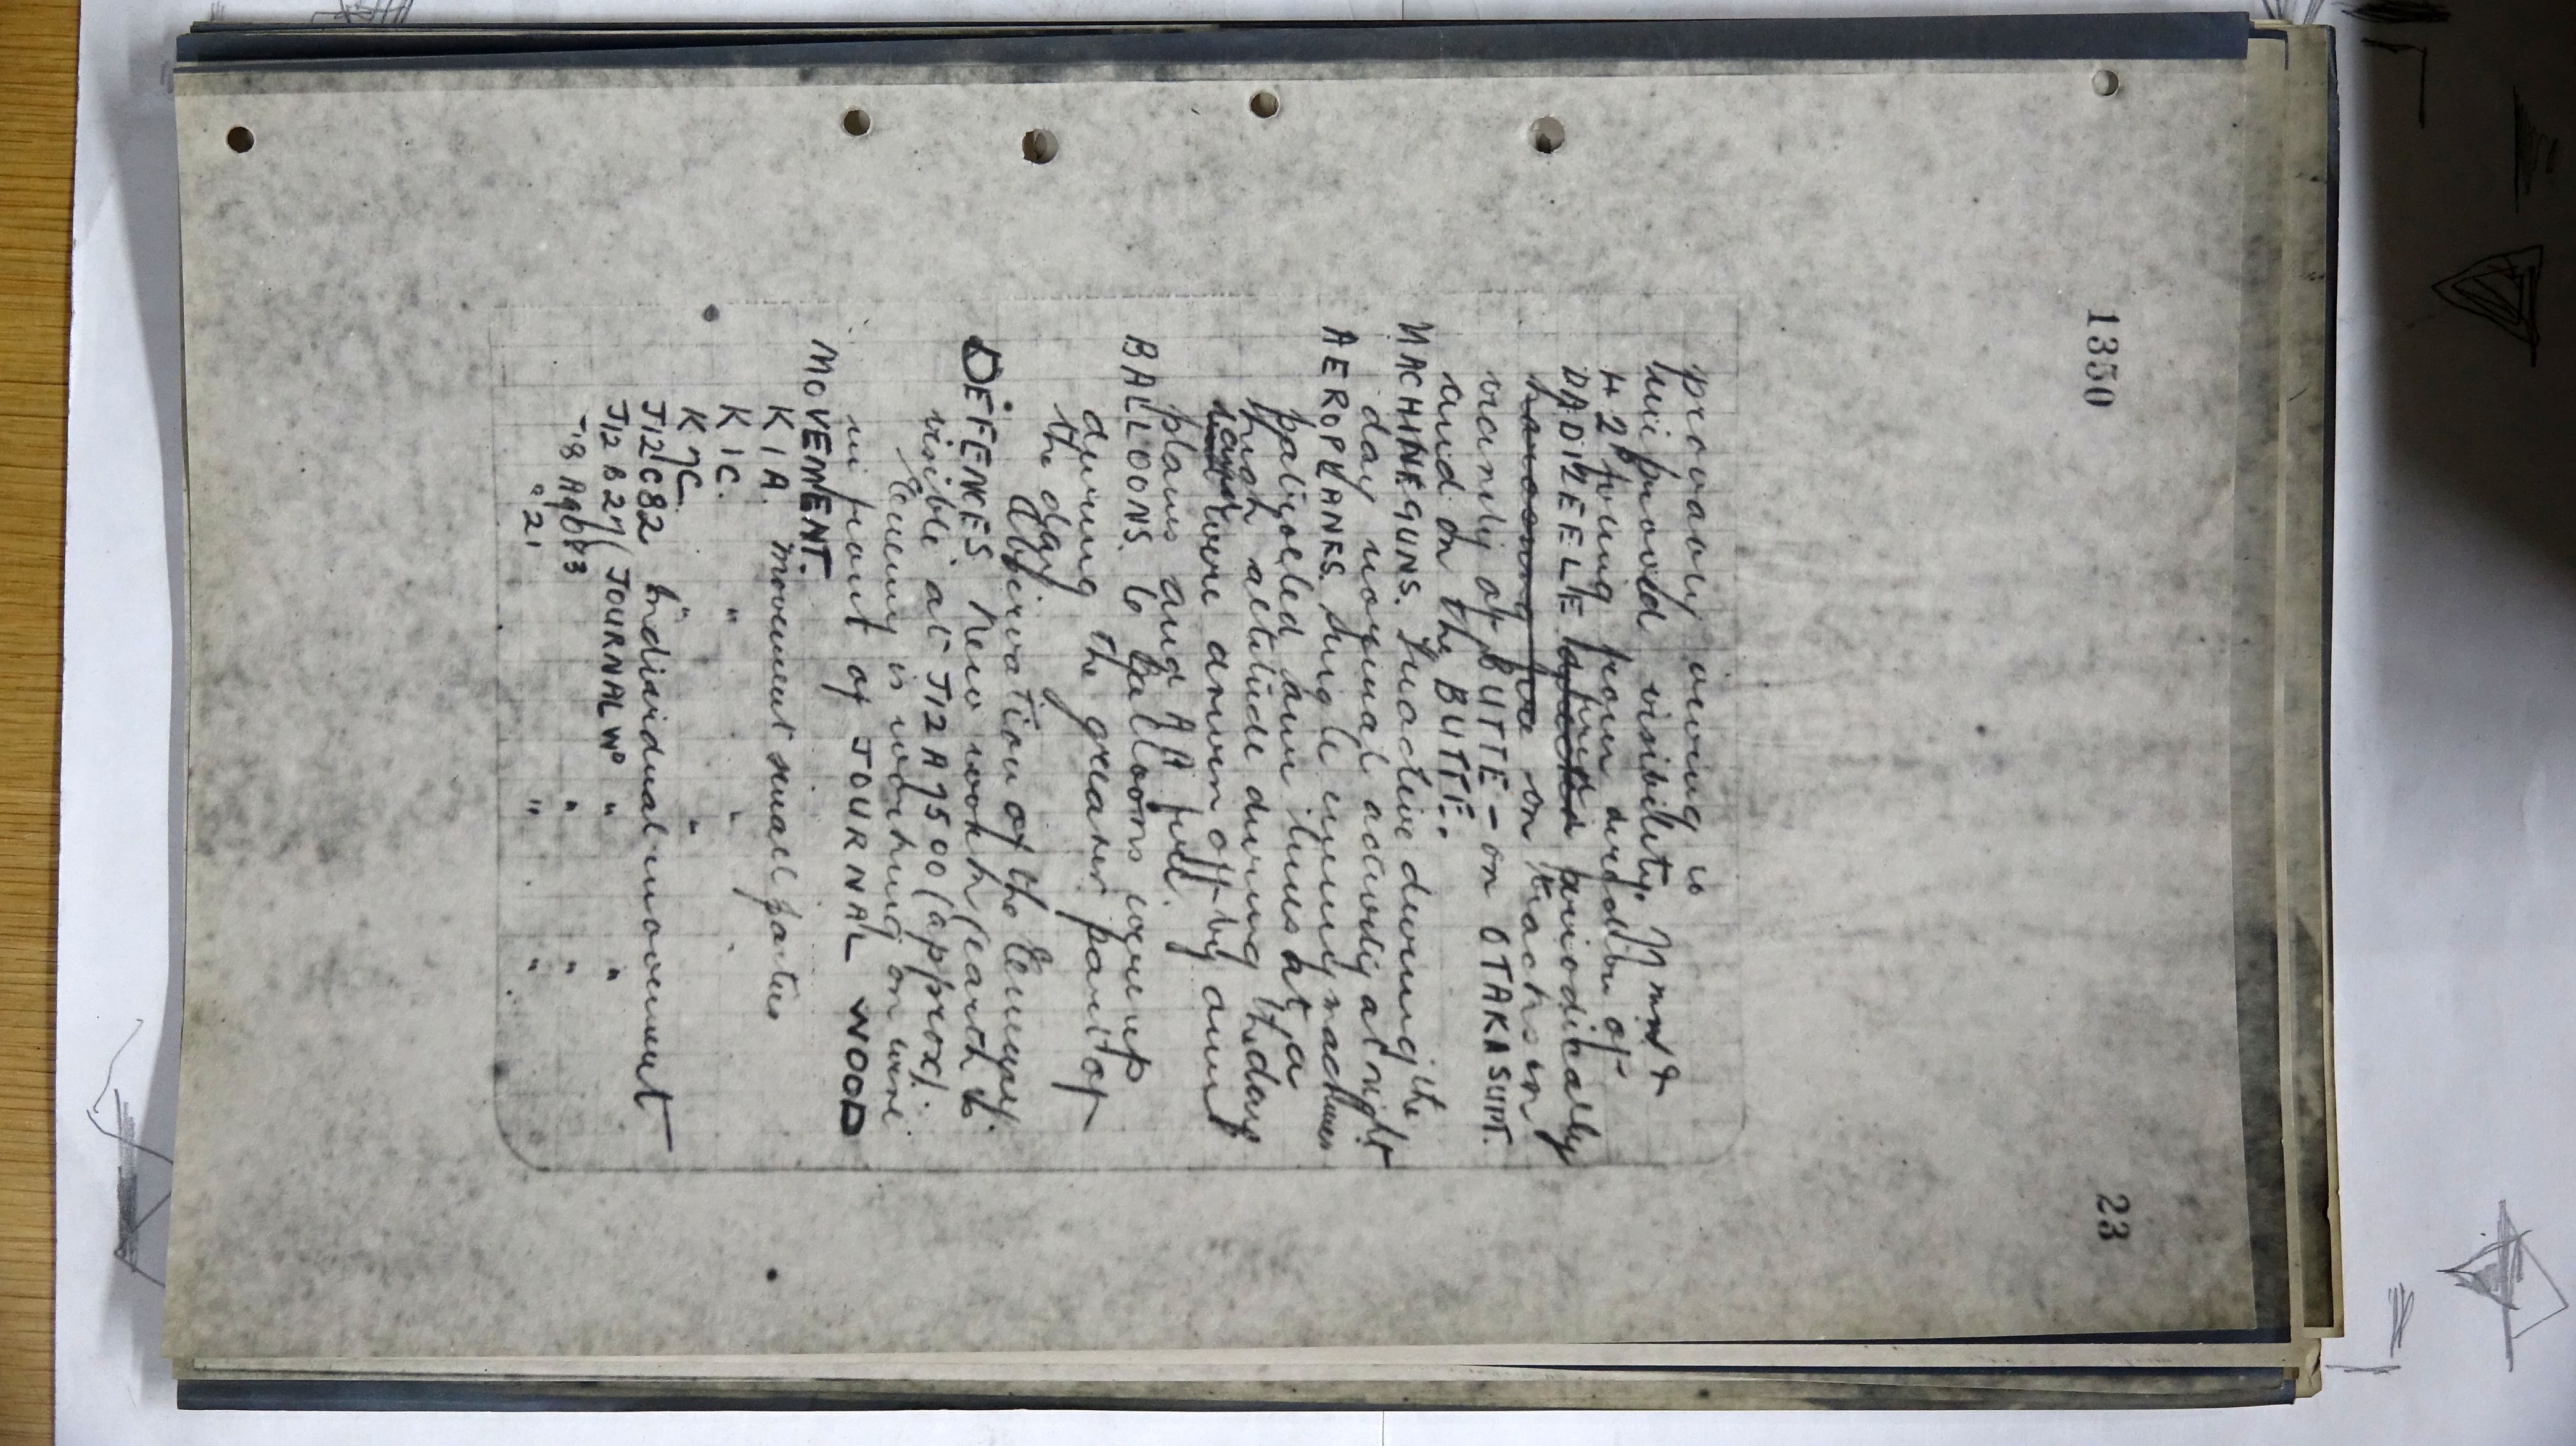 1350
23
probably owing to
improved visibility. 77mm &
4.2s firing from direction of
DADIZEELE periodically
on tracks in
vicinity of BUTTE - on OTAKA SUPT.
and on the BUTTE.
MACHINE GUNS. Inactive during the
day normal activity at night
AEROPLANES. Single enemy machines
patrolled own lines at a
high altitude during the day
were driven off by our
planes and A A fire.
BALLOONS. 6 Balloons were up
during the greater part of
the day
Observation of the Enemy.
DEFENCES New work (earth) is
visible at J12 A 7500 (approx).
Enemy is working on wire
in front of JOURNAL WOOD
MOVEMENT.
K 1 A. movement small parties
K 1 C. " "
K 7 C. " "
J12 C 82 Individual movement
J12 B 27 (JOURNAL WD " "
J 18 A 9083 " "
" 21 " "